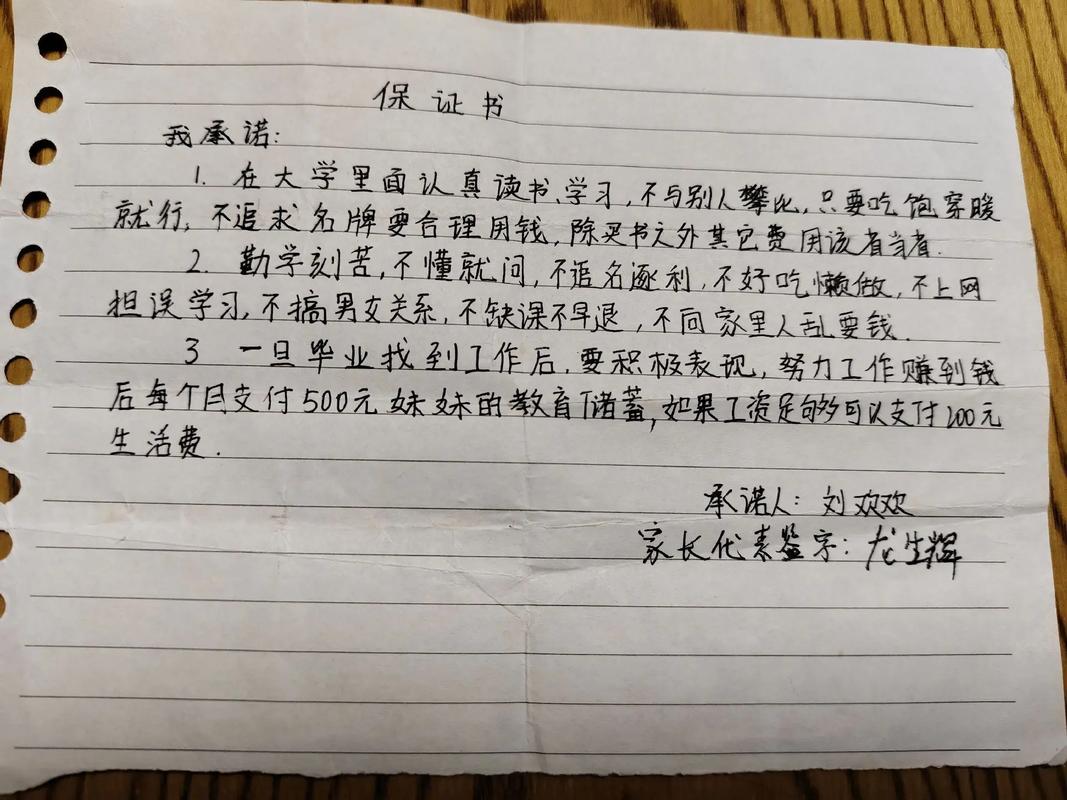 保证书
我承诺:
1. 在大学里面认真读书、学习,不与别人攀比,只要吃饱穿暖
就行,不追求名牌要合理用钱,除买书之外其它费用该省当省.
2. 勤学刻苦,不懂就问,不追名逐利,不好吃懒做,不上网
担误学习,不搞男女关系,不缺课不早退,不向家里人乱要钱.
3 一旦毕业找到工作后,要积极表现,努力工作赚到钱
后每个月支付500元妹妹的教育储蓄,如果工资足够可以支付200元
生活费.
承诺人:刘欢欢
家长代表鉴字:龙生辉